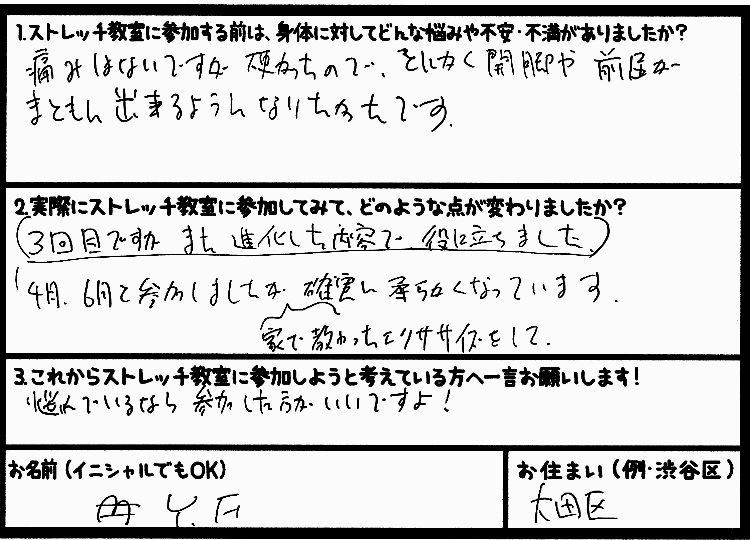 1.ストレッチ教室に参加する前は、身体に対してどんな悩みや不安・不満がありましたか?
痛みはないですが 硬かったので、とにかく 開脚や 前屈が
まともに 出来るようになりたかったです。
2.実際にストレッチ教室に参加してみて、どのような点が変わりましたか?
(3回目ですが また 進化した内容で 役に立ちました。)
4月、6月と参加しましたが 確実に 柔らかくなっています。
家で教わったエクササイズをして。
3.これからストレッチ教室に参加しようと考えている方へ一言お願いします!
悩んでいるなら 参加した方が いいですよ!
お名前(イニシャルでもOK)
Y.F
お住まい(例・渋谷区)
大田区